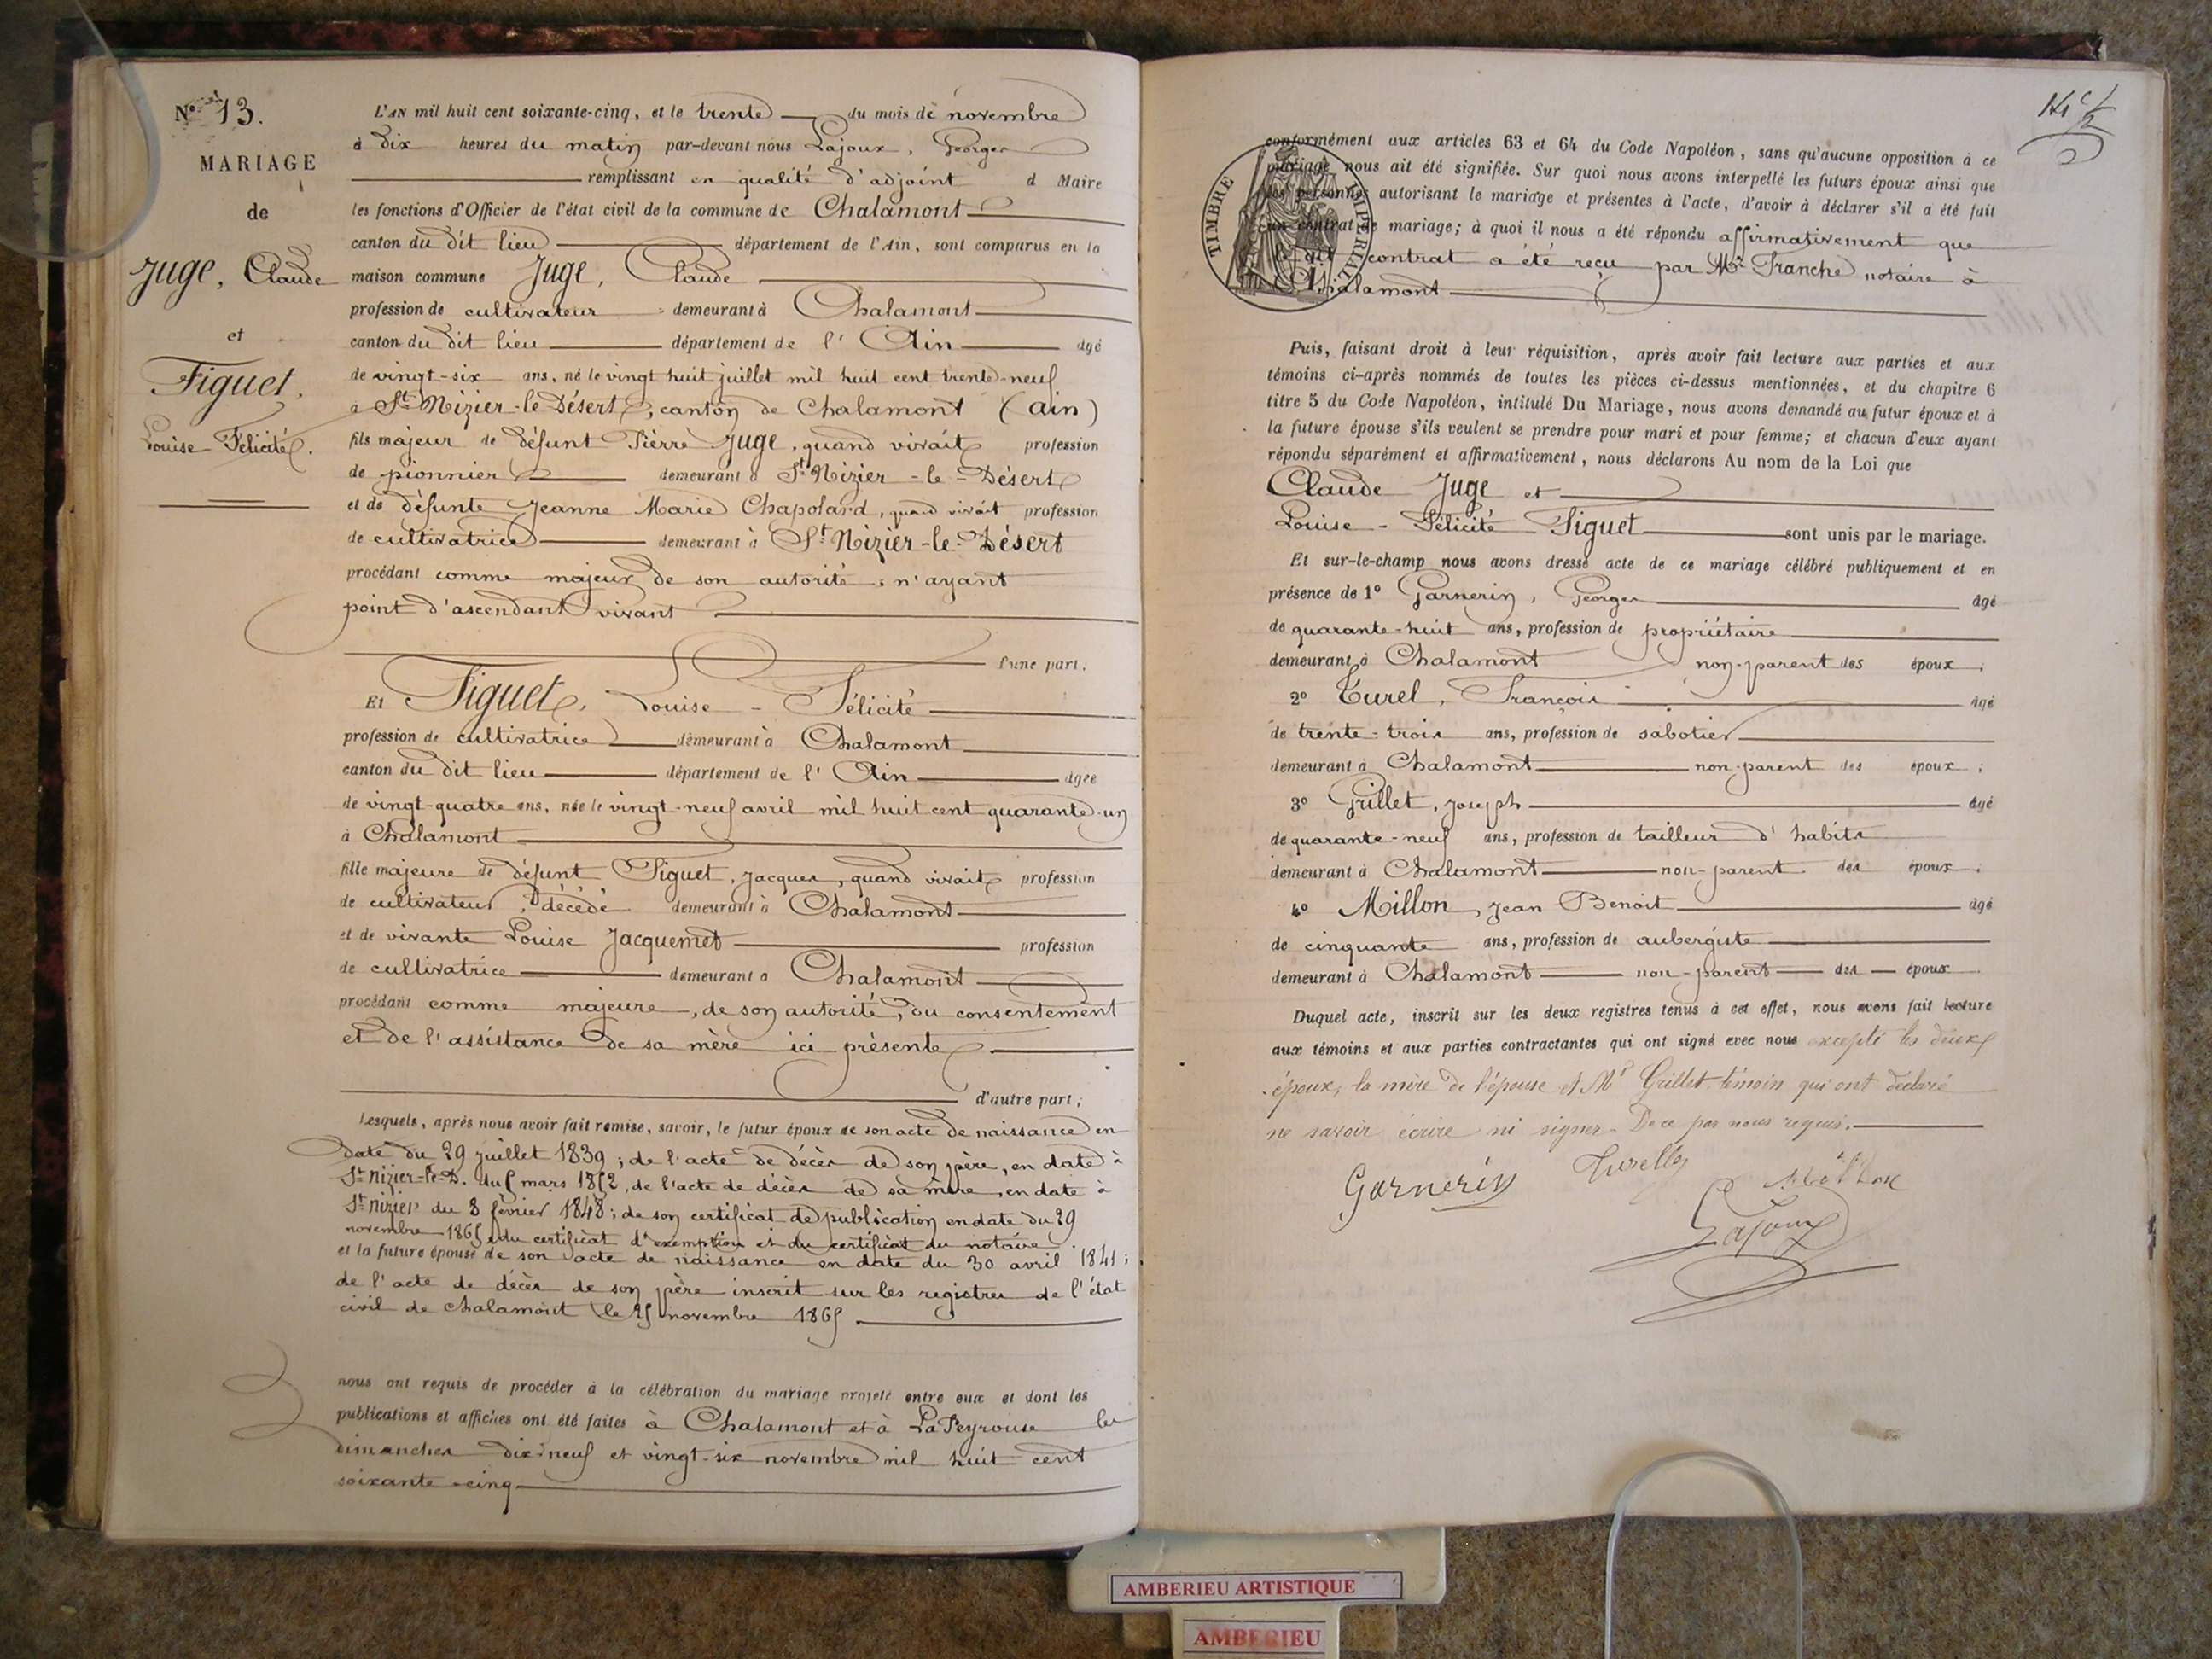 N° 13.
MARIAGE
de
Juge, Claude
et
Figuet,
Louise Félicité.
L'AN mil huit cent soixante-cinq, et le trente du mois de novembre
à dix heures du matin par-devant nous Lajoux, Georges
remplissant en qualité d'adjoint d Maire
les fonctions d'Officier de l'état civil de la commune de Chalamont
canton du dit lieu département de l'Ain, sont comparus en la
maison commune Juge, Claude
profession de cultivateur demeurant à Chalamont
canton du dit lieu département de l' Ain âgé
de vingt-six ans, né le vingt huit juillet mil huit cent trente-neuf
à St Nizier-le-Désert, canton de Chalamont (Ain)
fils majeur de défunt Pierre Juge, quand vivait profession
de pionnier demeurant à St Nizier-le-Désert
et de défunte Jeanne Marie Chapolard, quand vivait profession
de cultivatrice demeurant à St Nizier-le-Désert
procédant comme majeur de son autorité, n'ayant
point d'ascendant vivant
l'une part.
Et Figuet, Louise-Félicité
profession de cultivatrice demeurant à Chalamont
canton du dit lieu département de l' Ain âgée
de vingt-quatre ans, née le vingt-neuf avril mil huit cent quarante-un
à Chalamont
fille majeure de défunt Figuet, Jacques, quand vivait profession
de cultivateur, décédé demeurant à Chalamont
et de vivante Louise Jacquemet profession
de cultivatrice demeurant à Chalamont
procédant comme majeure, de son autorité, du consentement
et de l'assistance de sa mère ici présente
d'autre part;
Lesquels, après nous avoir fait remise, savoir, le futur époux de son acte de naissance en
date du 29 juillet 1839; de l'acte de décès de son père, en date à
St Nizier-le-D. du 5 mars 1852, de l'acte de décès de sa mère, en date à
St Nizier du 8 février 1848; de son certificat de publication en date du 29
novembre 1865, du certificat d'exemption et du certificat du notaire
et la future épouse de son acte de naissance en date du 30 avril 1841;
de l'acte de décès de son père inscrit sur les registres de l'état
civil de Chalamont le 25 novembre 1865.
nous ont requis de procéder à la célébration du mariage projeté entre eux et dont les
publications et affiches ont été faites à Chalamont et à La Peyrouse les
dimanches dix-neuf et vingt-six novembre mil huit cent
soixante-cinq
TIMBRE IMPERIAL
conformément aux articles 63 et 64 du Code Napoléon, sans qu'aucune opposition à ce
mariage nous ait été signifiée. Sur quoi nous avons interpellé les futurs époux ainsi que
les personnes autorisant le mariage et présentes à l'acte, d'avoir à déclarer s'il a été fait
un contrat de mariage; à quoi il nous a été répondu affirmativement que
le dit contrat a été reçu par Me Franche notaire à
Chalamont
Puis, faisant droit à leur réquisition, après avoir fait lecture aux parties et aux
témoins ci-après nommés de toutes les pièces ci-dessus mentionnées, et du chapitre 6
titre 5 du Code Napoléon, intitulé Du Mariage, nous avons demandé au futur époux et à
la future épouse s'ils veulent se prendre pour mari et pour femme; et chacun d'eux ayant
répondu séparément et affirmativement, nous déclarons Au nom de la Loi que
Claude Juge et
Louise-Félicité Figuet sont unis par le mariage.
Et sur-le-champ nous avons dressé acte de ce mariage célébré publiquement et en
présence de 1° Garnerin, Georges âgé
de quarante-huit ans, profession de propriétaire
demeurant à Chalamont non-parent des époux;
2° Turel, François âgé
de trente-trois ans, profession de sabotier
demeurant à Chalamont non-parent des époux;
3° Grillet, Joseph âgé
de quarante-neuf ans, profession de tailleur d'habits
demeurant à Chalamont non-parent des époux.
4° Millon, Jean Benoit âgé
de cinquante ans, profession de aubergiste
demeurant à Chalamont non-parent des époux
Duquel acte, inscrit sur les deux registres tenus à cet effet, nous avons fait lecture
aux témoins et aux parties contractantes qui ont signé avec nous excepté les deux
époux, la mère de l'épouse et Mr Grillet témoin qui ont déclaré
ne savoir écrire ni signer. De ce par nous requis.
Garnerin
Lajoux
AMBERIEU ARTISTIQUE
AMBERIEU